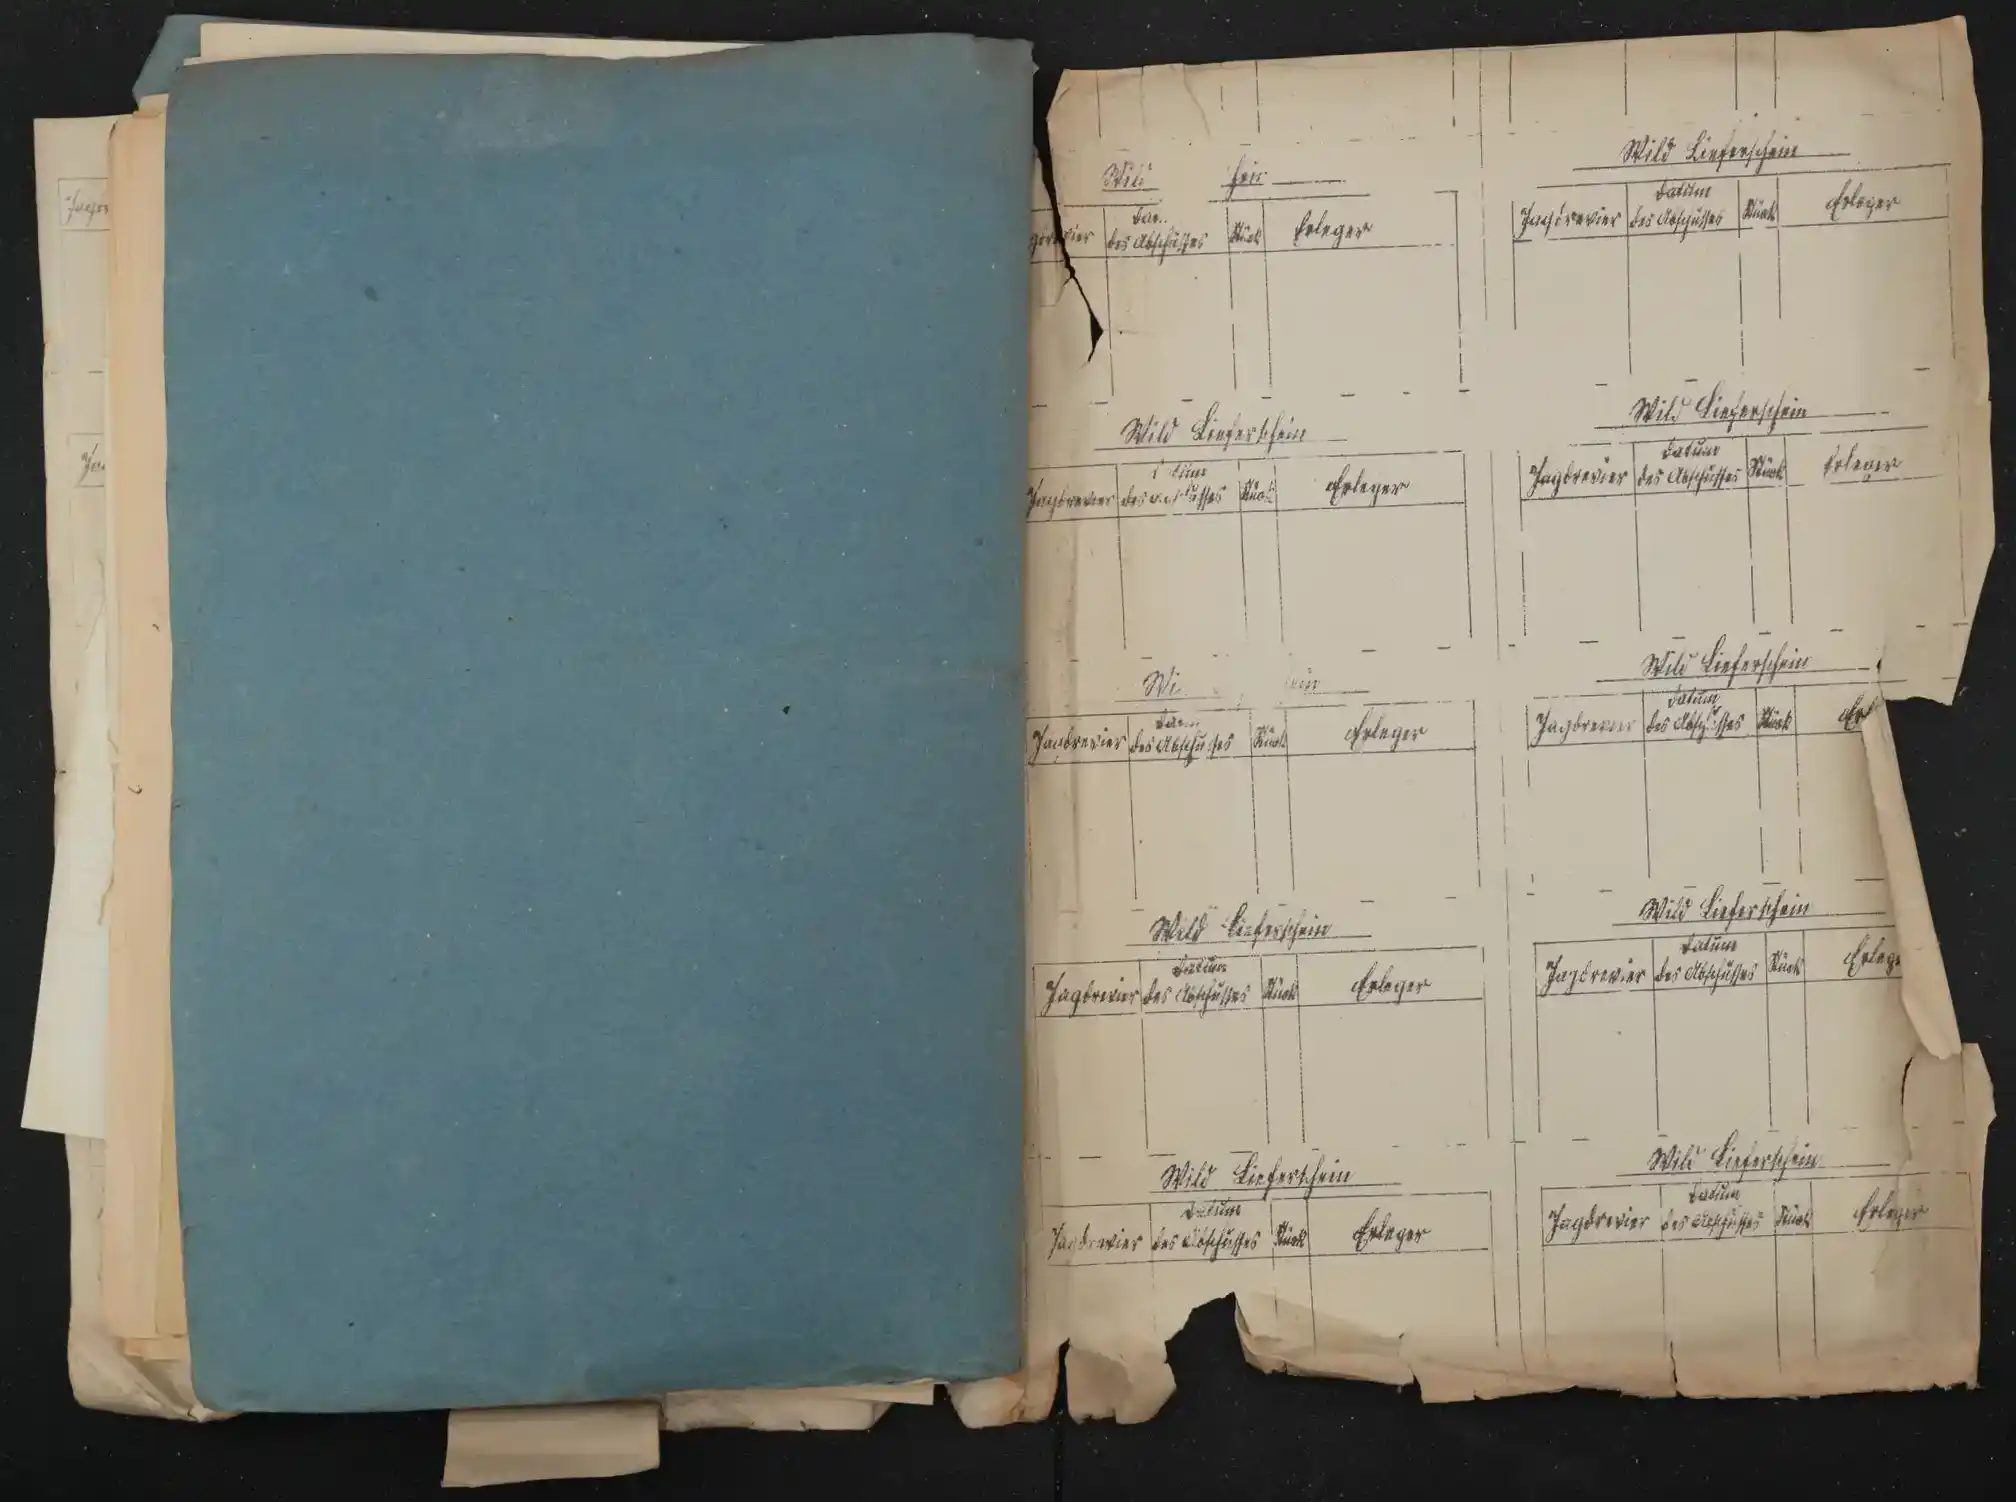 Jagdr
Wild hein
Jagdrevier des Abschusses Stück Erleger
Wild Lieferschein
Datum
Jagdrevier des Abschusses Stück Erleger
Wild Lieferschein
Datum
Jagdrevier des Abschusses Stück Erleger
Wild Lieferschein
Datum
Jagdrevier des Abschusses Stück Erleger
Wi ein
Jagdrevier des Abschusses Stück Erleger
Wild Lieferschein
Datum
Jagdrevier des Abschusses Stück Erl
Wild Lieferschein
Datum
Jagdrevier des Abschusses Stück Erleger
Wild Lieferschein
Datum
Jagdrevier des Abschusses Stück Erlege
Wild Lieferschein
Datum
Jagdrevier des Abschusses Stück Erleger
Wild Lieferschein
Datum
Jagdrevier des Abschusses Stück Erleger